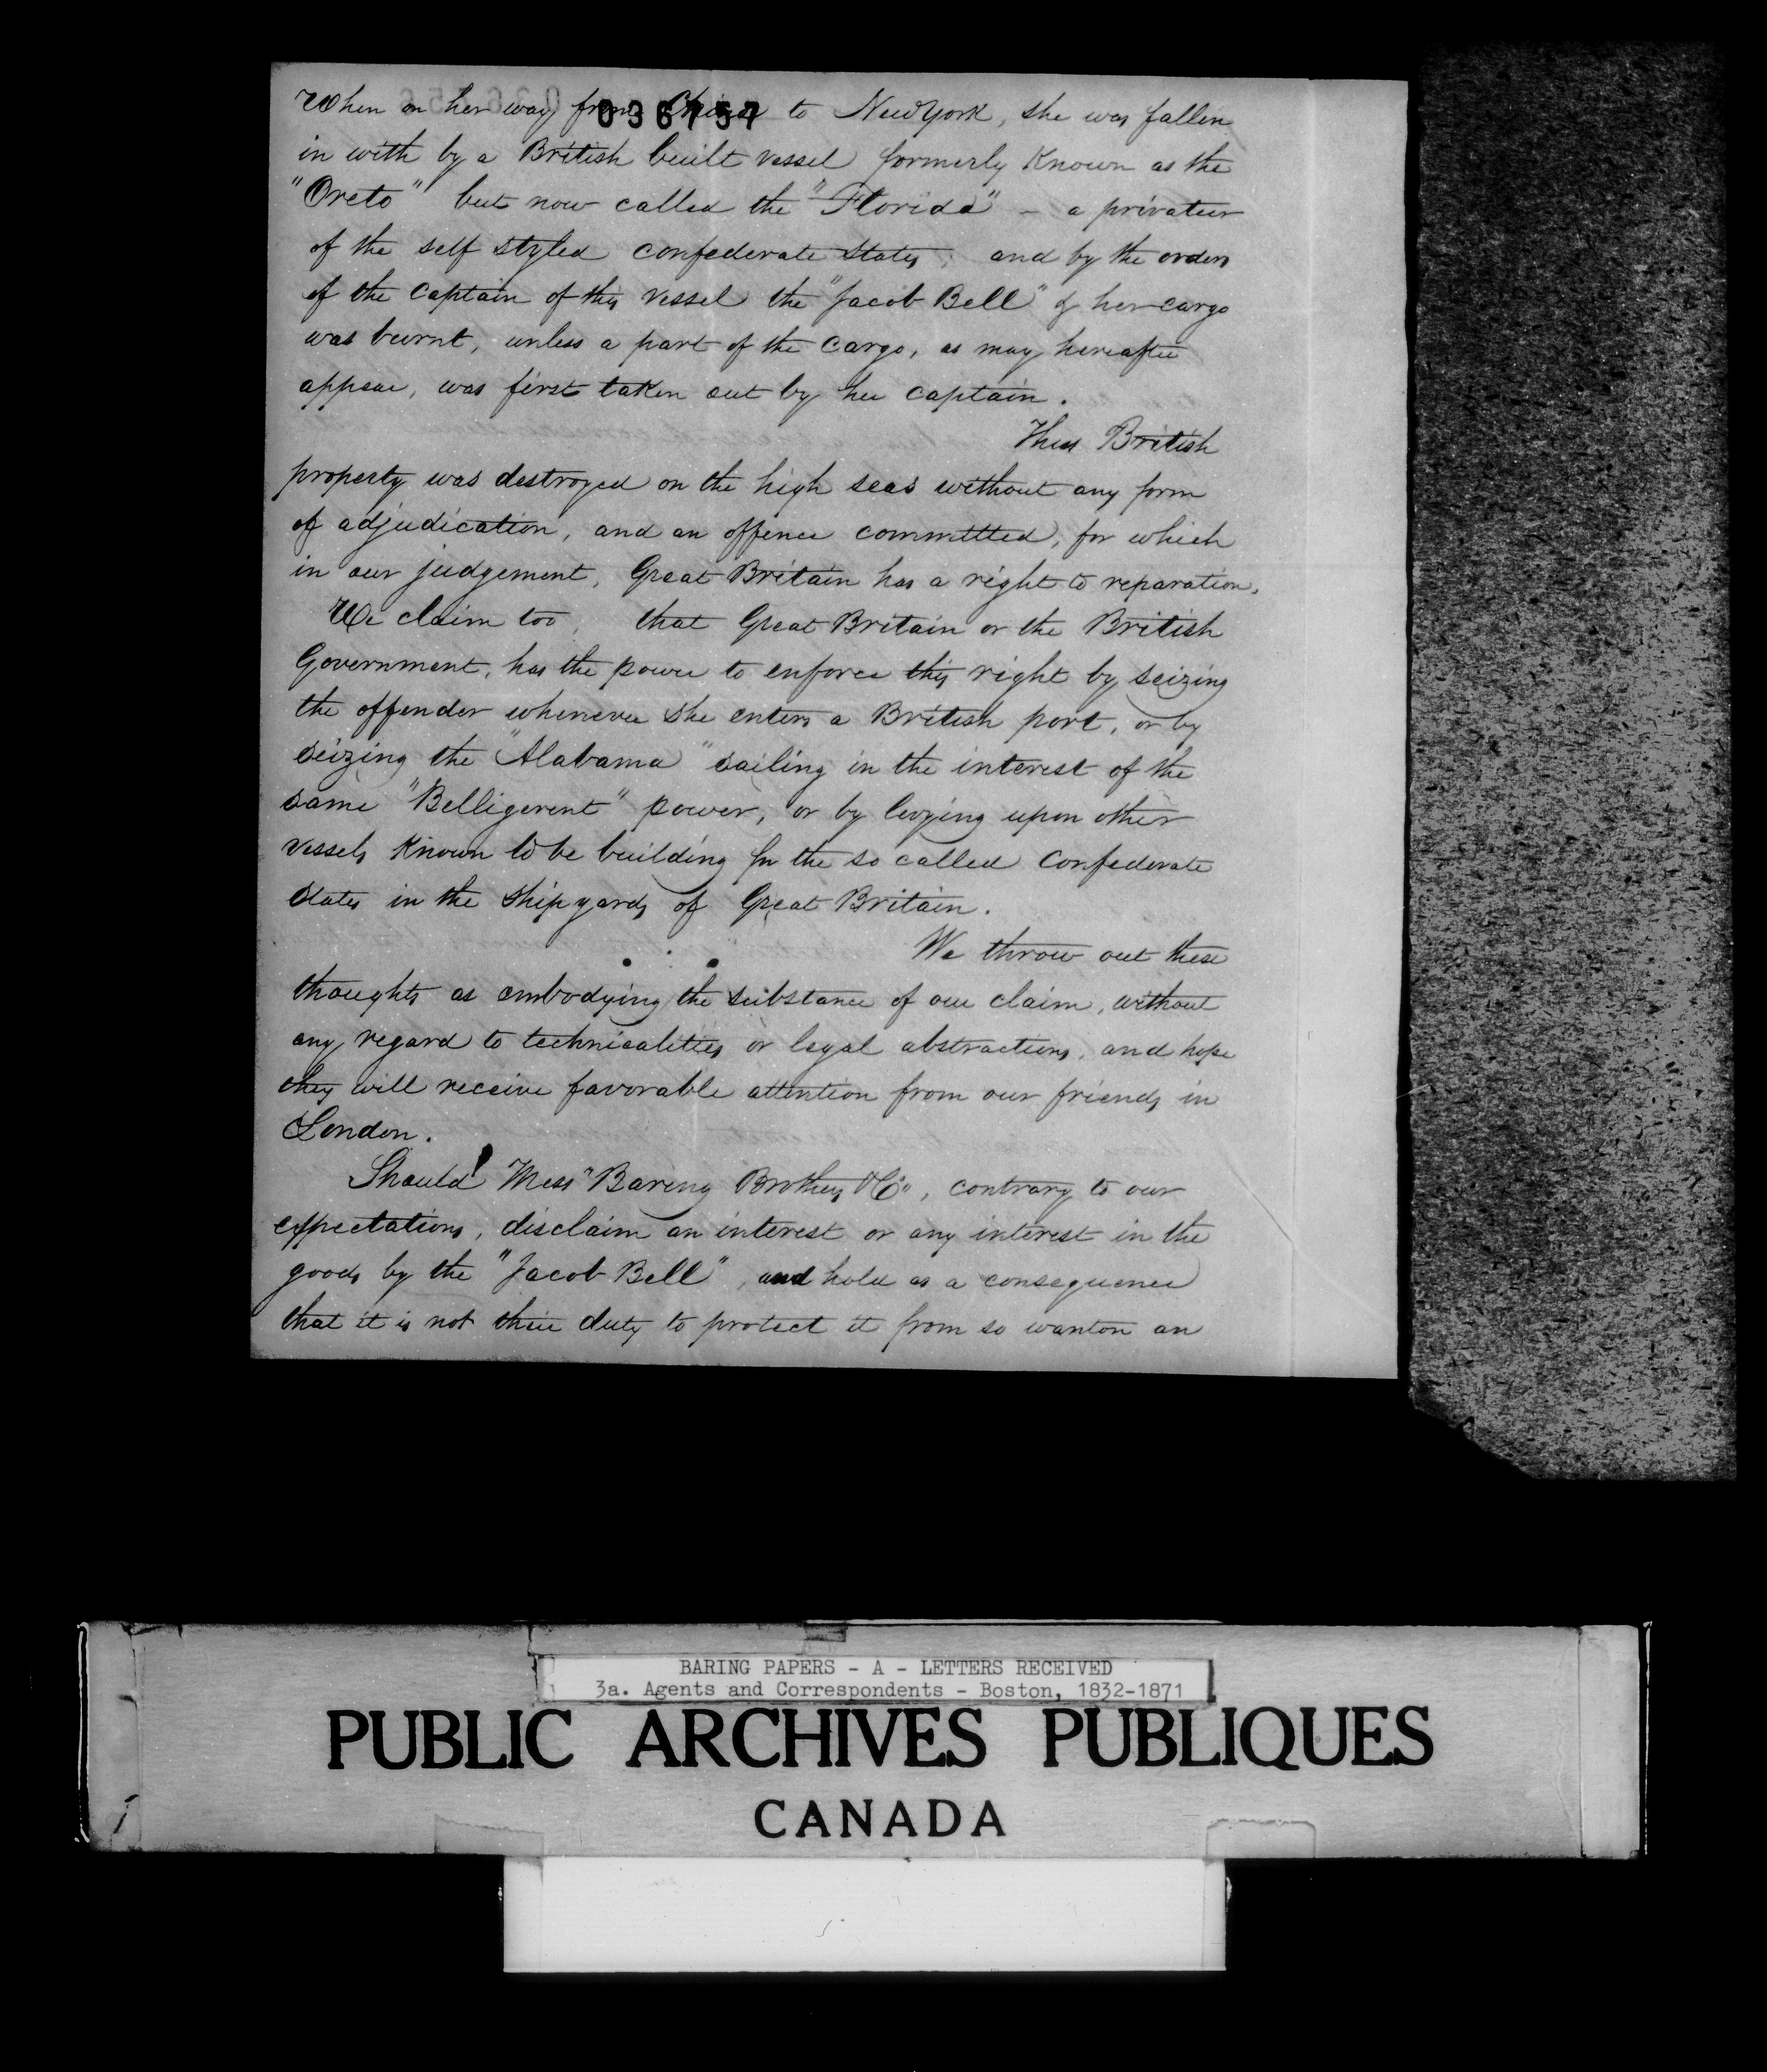 036757
When on her way from China to New York, she was fallen
in with by a British built vessel formerly Known as the
"Oreto" but now called the "Florida" - a privateer
of the self styled confederate states, and by the orders
of the Captain of this vessel the "Jacob Bell" & her cargo
was burnt, unless a part of the cargo, as may hereafter
appear, was first taken out by her captain.
Thus British
property was destroyed on the high seas without any form
of adjudication, and an offence committed, for which
in our judgement, Great Britain has a right to reparation.
We claim too, that Great Britain or the British
Government, has the power to enforce this right by seizing
the offender whenever she enters a British port, or by
seizing the "Alabama" sailing in the interest of the
same "Belligerent" power, or by levying upon other
vessels Known to be building for the so called confederate
states in the ship yards of Great Britain.
We throw out these
thoughts as embodying the substance of our claim, without
any regard to technicalities or legal abstractions, and hope
they will receive favorable attention from our friends in
London.
Should Mess" Baring Brothers & Co, contrary to our
expectations, disclaim an interest or any interest in the
goods by the "Jacob Bell", and hold as a consequence
that it is not their duty to protect it from so wanton an
BARING PAPERS - A - LETTERS RECEIVED
3a. Agents and Correspondents - Boston, 1832-1871
PUBLIC ARCHIVES PUBLIQUES
CANADA